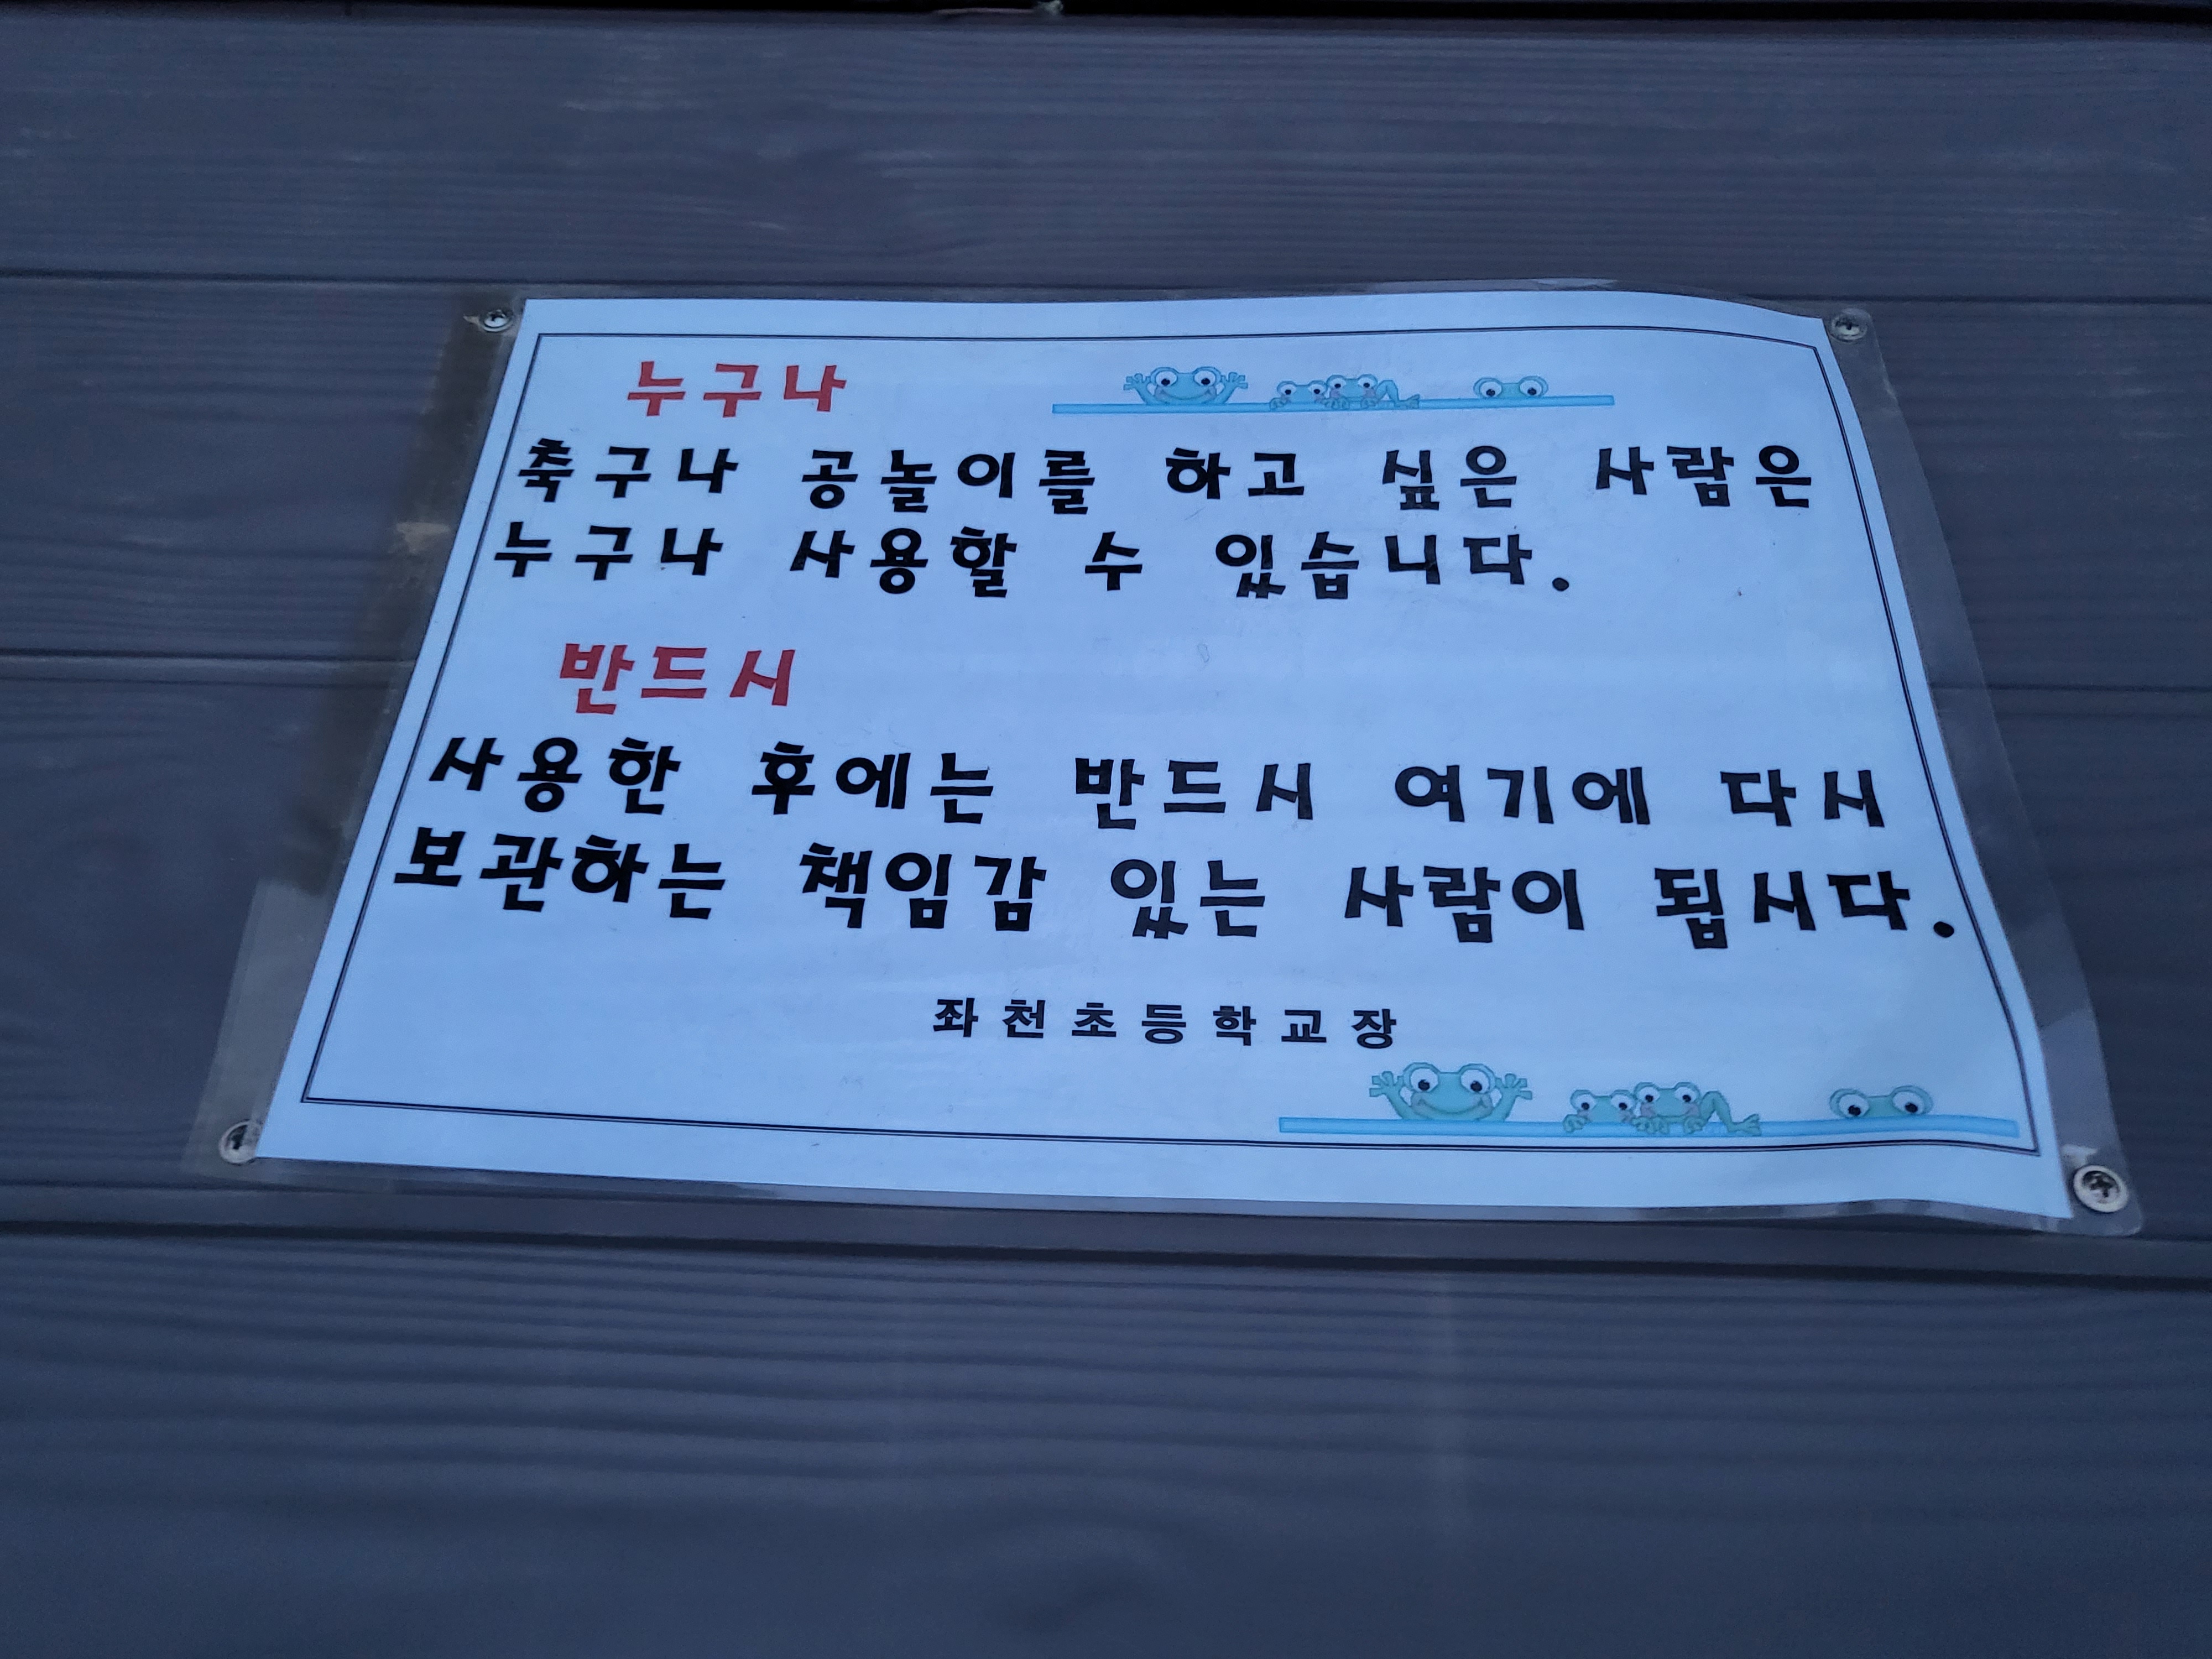 누구나
축구나 공놀이를 하고 싶은 사람은
누구나 사용할 수 있습니다.
반드시
사용한 후에는 반드시 여기에 다시
보관하는 책임감 있는 사람이 됩시다.
좌천초등학교장